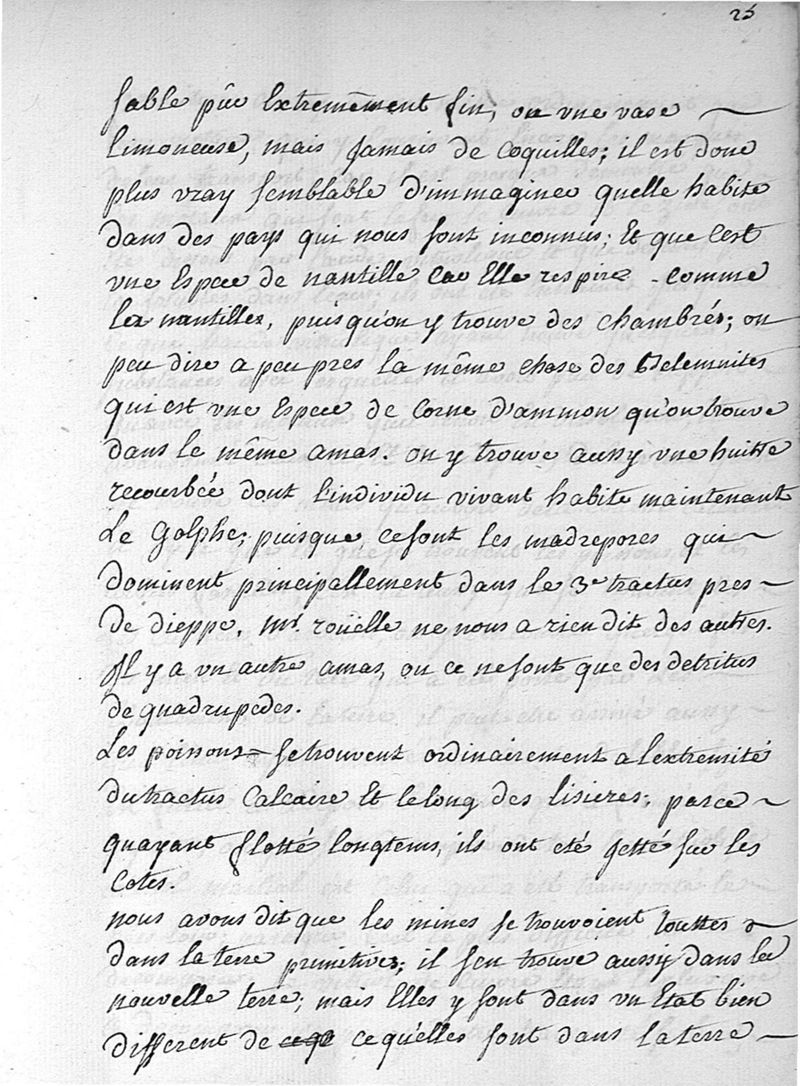 25
sable pûr Extremement fin, ou vne vase
limoneuse, mais Jamais de Coquilles; il est donc
plus vray semblable d'immaginer quelle habite
dans des pays qui nous sont inconnus; Et que C'est
vne Espece de nantille Car Elle respire comme
les nantilles, puisqu'on y trouve des chambrés; on
peu dire a peu pres la même chose des Belemnites
qui est vne Espece de Corne d'ammon qu'on trouve
dans le même amas. on y trouve aussy vne huitre
recourbée dont l'individu vivant habite maintenant
Le Golphe; puisque ce sont les madrepores qui
dominent principallement dans le 3e tractus pres
de dieppe, Mr. roüelle ne nous a rien dit des autres.
Il y a vn autre amas, ou ce ne sont que des detritus
de quadrupedes.
Les poissons se trouvent ordinairement a l'extremité
du tractus Calcaire Et le long des lisieres; parce
quayant flotté longtems, ils ont eté jetté sur les
Cotes.
nous avons dit que les mines se trouvoient touttes
dans la terre primitive; il s'en trouve aussy dans la
nouvelle terre; mais Elles y sont dans vn Etat bien
different de ce qu'elles sont dans la terre